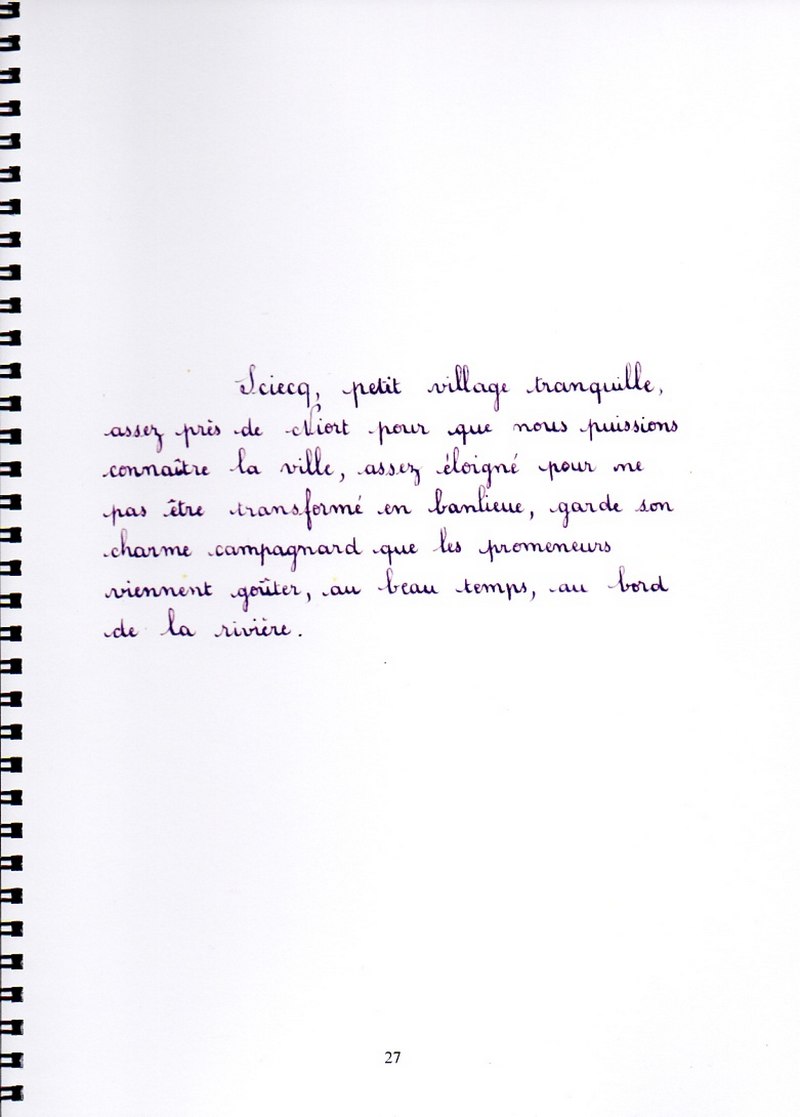 Sciecq, petit village tranquille,
assez près de Niort pour que nous puissions
connaître la ville, assez éloigné pour ne
pas être transformé en banlieue, garde son
charme campagnard que les promeneurs
viennent goûter, au beau temps, au bord
de la rivière.
27